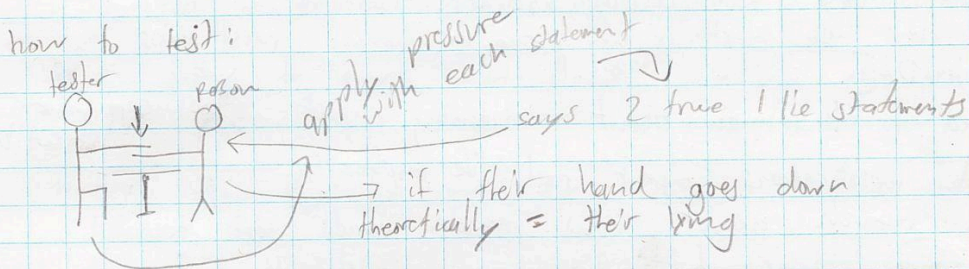 how to test:
tester
person
apply pressure
with each statement
says 2 true 1 lie statements
if their hand goes down
theoretically = their lying